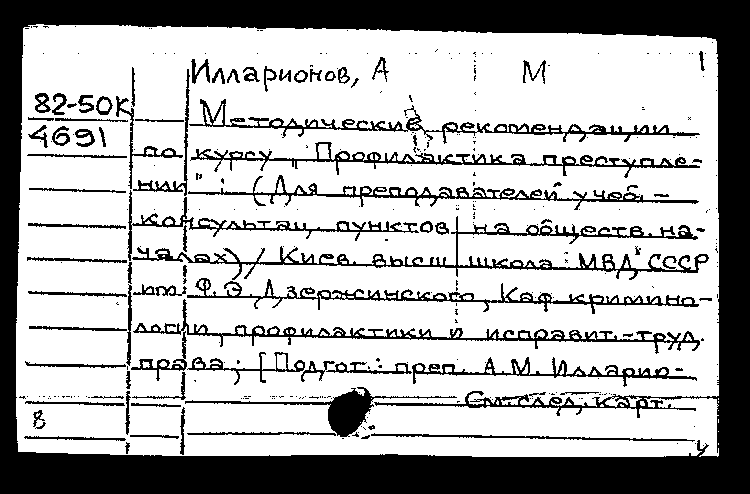 1
Илларионов, А М
82-50К
4691
Методические рекомендации
по курсу „Профилактика преступле-
ний" : (Для преподавателей учеб.-
консультац. пунктов на обществ. на-
чалах) / Киев. высш школа МВД СССР
им. Ф. Э. Дзержинского, Каф. кримино-
логии, профилактики и исправит.-труд.
права; [Подгот.: преп. А. М. Илларио-
См. след. карт.
8